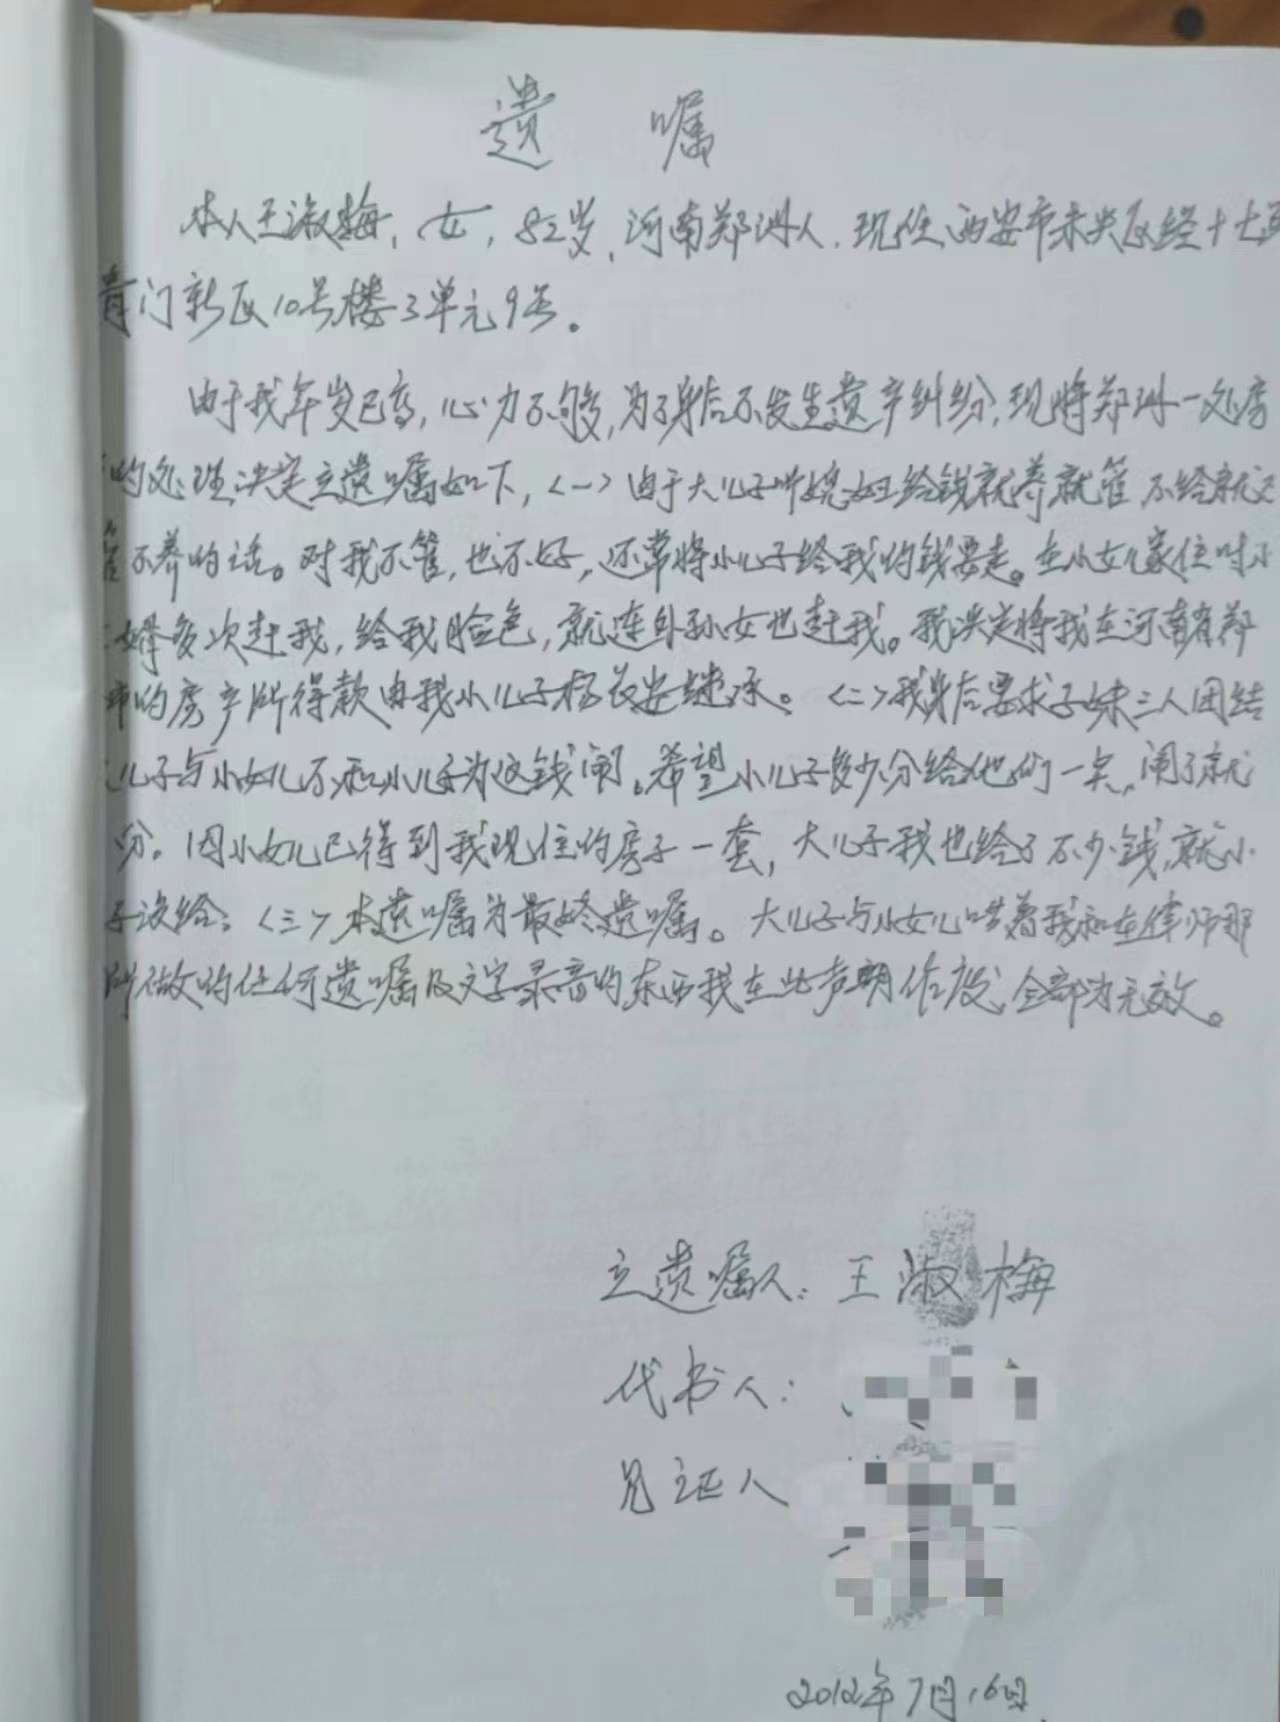 遗 嘱
本人王淑梅，女，82岁，河南郑州人．现住西安市未央区经十七
青门新区10号楼3单元9号。
由于我年岁已高，心力不够，为了身后不发生遗产纠纷，现将郑州一处房
的处理决定立遗嘱如下，<一>由于大儿子听媳妇给钱就养就管 不给就不
管不养的话。对我不管，也不好，还常将小儿子给我的钱要走。在小女儿家住时小
婿多次赶我，给我脸色，就连外孙女也赶我。我决定将我在河南省郑
市的房产所得款由我小儿子杨 安继承。<二>我身后要求子妹三人团结
儿子与小女儿不和小儿子为这钱闹。希望小儿子多少分给他们一点，闹了就
分。因小女儿已得到我现住的房子一套，大儿子我也给了不少钱，就小
子没给；<三>本遗嘱为最终遗嘱。大儿子与小女儿哄着我和在律师那
所做的任何遗嘱及文字录音的东西我在此声明作废，全部为无效。
立遗嘱人：王淑梅
代书人：
见证人
2012年7月16日